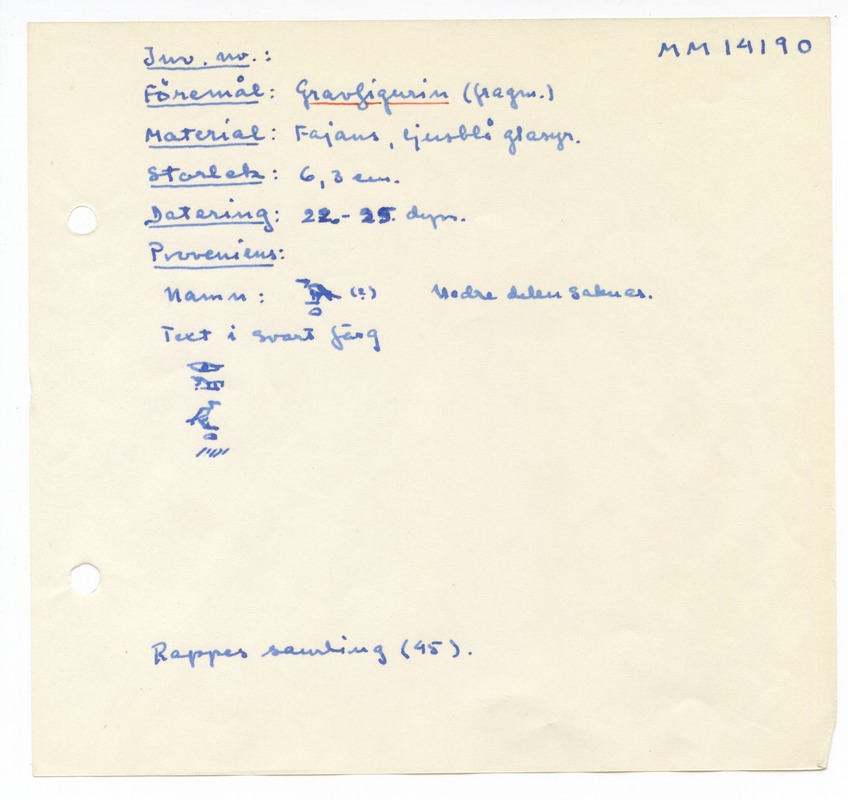 MM 14190
Inv. nr.:
Föremål: Gravfigurin (fragm.)
Material: Fajans, ljusblå glasyr.
Storlek: 6,3 cm.
Datering: 22.- 25. dyn.
Proveniens:
Namn: (?) Nedre delen saknas.
Text i svart färg
Rappes samling (45).